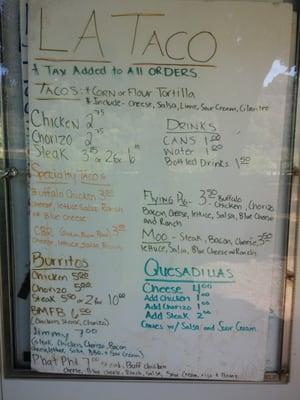 LA TACO
* Tax Added to All ORDERS.
TACOS: * Corn or Flour Tortilla
* Include - Cheese, Salsa, Lime, Sour Cream, Cilantro
Chicken 2.75
Chorizo 2.75
Steak 3.25 or 2 for 6
DRINKS
CANS 1.00
Water 1.00
Bottled Drinks 1.50
Specialty Tacos
Buffalo Chicken 3.25
Cheese, lettuce, Salsa, Ranch
or Blue Cheese
CBR 3.25
Cheese, lettuce, Salsa, Ranch
Flying Pig - 3.50 Buffalo
Chicken, Chorizo
Bacon, Cheese, lettuce, Salsa, Blue Cheese
and Ranch
Moo - Steak, Bacon, Cheese, 3.50
lettuce, Salsa, Blue Cheese or Ranch
Burritos
Chicken 5.00
Chorizo 5.00
Steak 5.50 or 2 for 10.00
BMFB 6.50
(Chicken, Steak, Chorizo)
Jimmy 7.00
(Steak, Chicken, Chorizo, Bacon
Cheese, lettuce, Salsa, BBQ + Sour Cream)
Phat Phil 7.00 Steak, Buff chicken
Cheese, Blue Cheese, Ranch, Salsa, Sour Cream, rice + Beans
Quesadillas
Cheese 4.00
Add Chicken 1.00
Add Chorizo 1.00
Add Steak 2.00
Comes w/ Salsa and Sour Cream